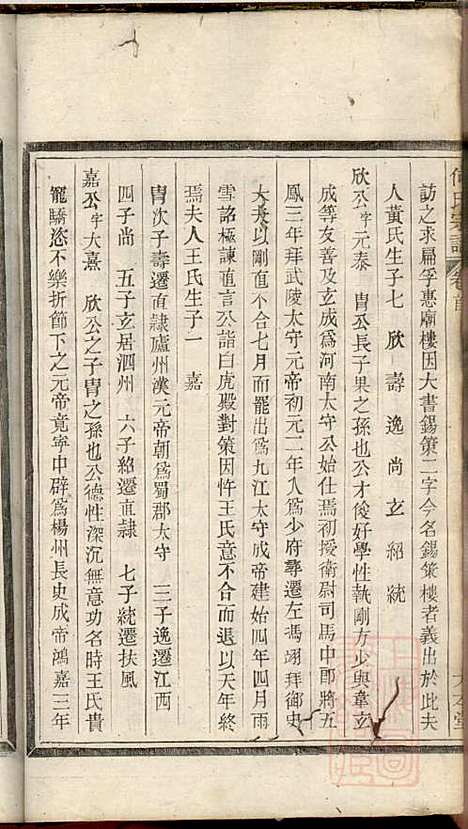 何氏宗譜 卷首
訪之求扁孚惠廟樓因大書錫策二字今名錫策樓者義出於此夫
人黃氏生子七 欣 壽 逸 尚 玄 紹 統
欣公字元泰 胄公長子果之孫也公才俊好學性執剛方少與韋玄
成等友善及玄成爲河南太守公始仕焉初授衛尉司馬中郎將五
鳳三年拜武陵太守元帝初元二年入爲少府尋遷左馮翊拜御史
大夫以剛直不合七月而罷出爲九江太守成帝建始四年四月雨
雪詔極諫直言公詣白虎殿對策因忤王氏意不合而退以天年終
焉夫人王氏生子一 嘉
胄次子壽遷直隸廬州漢元帝朝爲蜀郡太守 三子逸遷江西
四子尚 五子玄居泗州 六子紹遷直隸 七子統遷扶風
嘉公字大熹 欣公之子胄之孫也公德性深沉無意功名時王氏貴
寵驕恣不樂折節下之元帝竟寧中辟爲楊州長史成帝鴻嘉三年